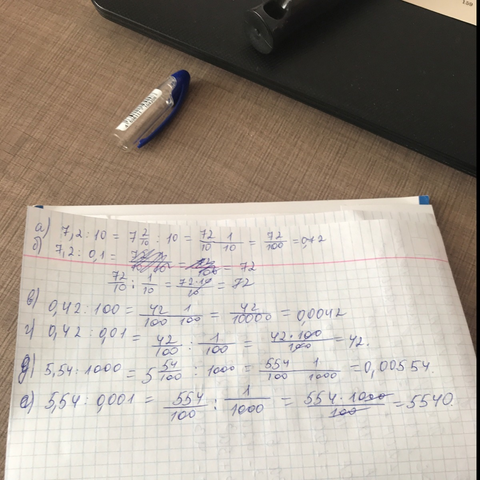 а) 7,2 : 10 = 7 2/10 : 10 = 72/10 1/10 = 72/100 = 0,72
б) 7,2 : 0,1 = = 72
72/10 : 1/10 = 72·10/10 = 72
в) 0,42 : 100 = 42/100 1/100 = 42/10000 = 0,0042
г) 0,42 : 0,01 = 42/100 : 1/100 = 42·100/100 = 42.
д) 5,54 : 1000 = 5 54/100 : 1000 = 554/100 1/1000 = 0,00554.
е) 5,54 : 0,001 = 554/100 : 1/1000 = 554·1000/100 = 5540.